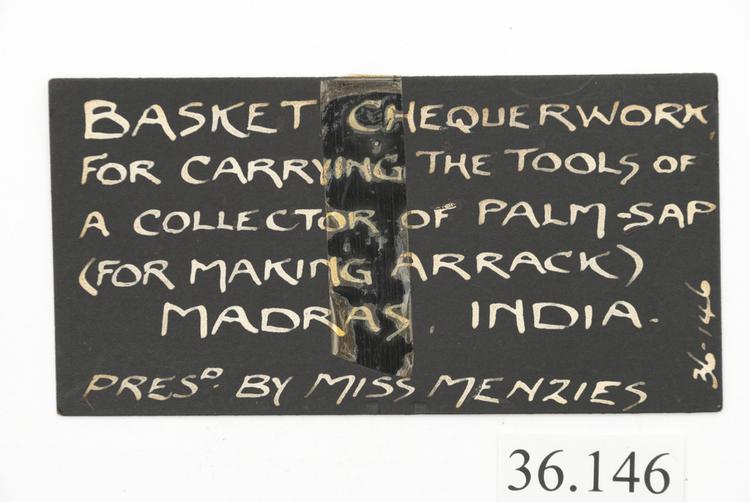 BASKET CHEQUERWORK,
FOR CARRYING THE TOOLS OF
A COLLECTOR OF PALM-SAP
(FOR MAKING ARRACK)
MADRAS. INDIA.
PRESD. BY MISS MENZIES
36·146
36.146